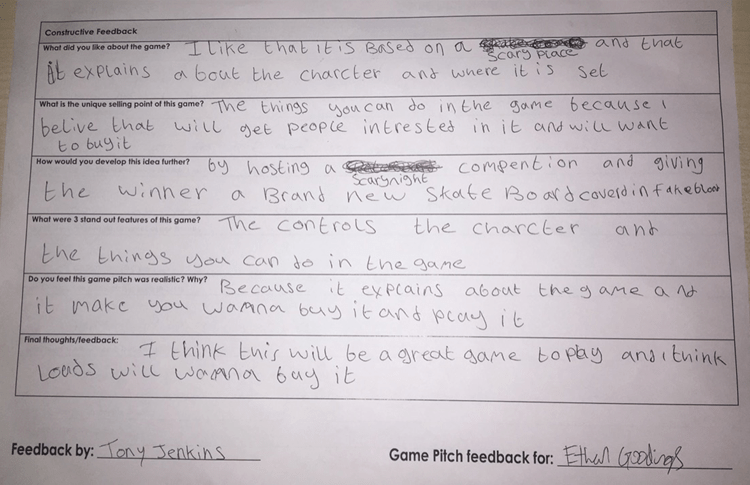 Constructive Feedback
What did you like about the game? I like that it is Based on a scary place and that
it explains about the charcter and where it is set
What is the unique selling point of this game? The things you can do in the game because i
belive that will get people intrested in it and will want
to buy it
How would you develop this idea further? by hosting a scary night compention and giving
the winner a Brand new Skate Board coverd in fake blood
What were 3 stand out features of this game? The controls the charcter and
the things you can do in the game
Do you feel this game pitch was realistic? Why? Because it explains about the game and
it make you wanna buy it and play it
Final thoughts/feedback: I think this will be a great game to play and i think
Loads will wanna buy it
Feedback by: Tony Jenkins
Game Pitch feedback for: Ethan Goodings